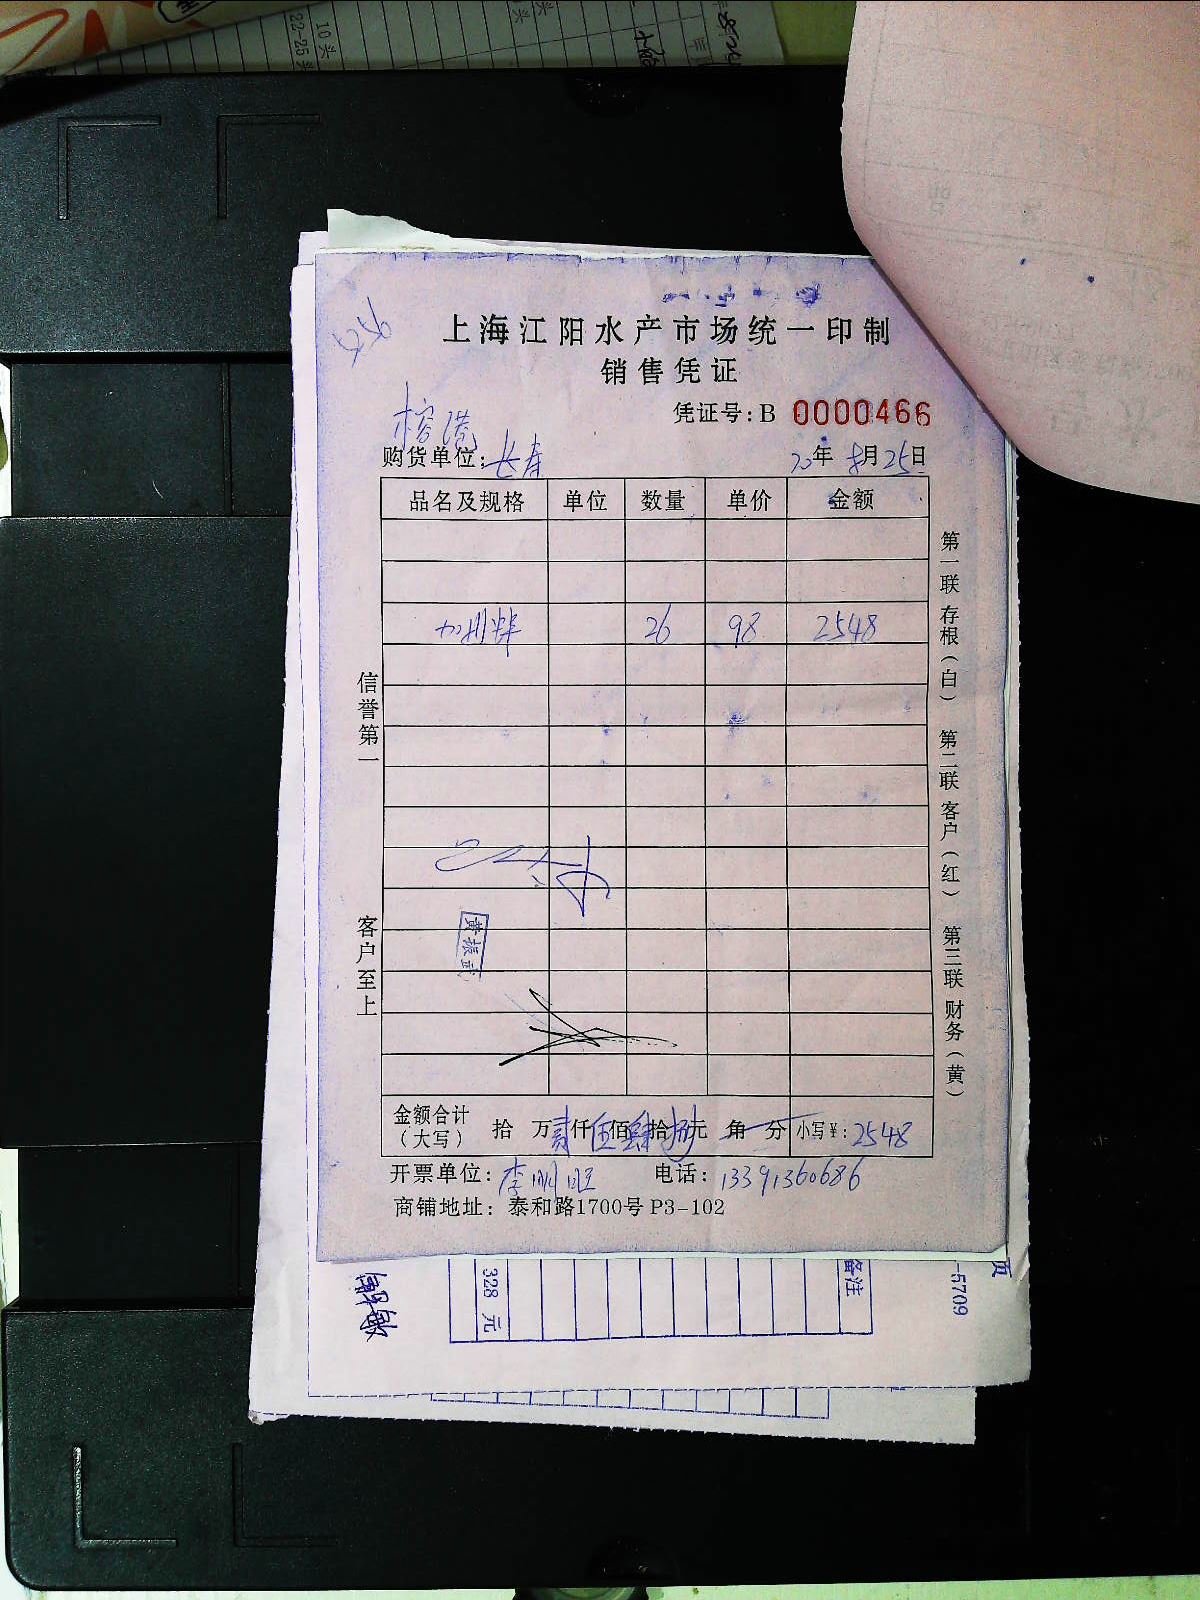 10头
22-25头
上海江阳水产市场统一印制
销售凭证
凭证号：B 0000466
榕港
购货单位：长寿
20年8月25日
品名及规格 单位 数量 单价 金额
26 98 2548
信誉第一
客户至上
第一联 存根（白） 第二联 客户（红） 第三联 财务（黄）
黄振武
金额合计（大写） 拾 万贰仟伍佰肆拾捌元 角 分 小写￥：2548
开票单位：李明旺 电话：13391360686
商铺地址：泰和路1700号 P3-102
328 元
备注
页
-5709